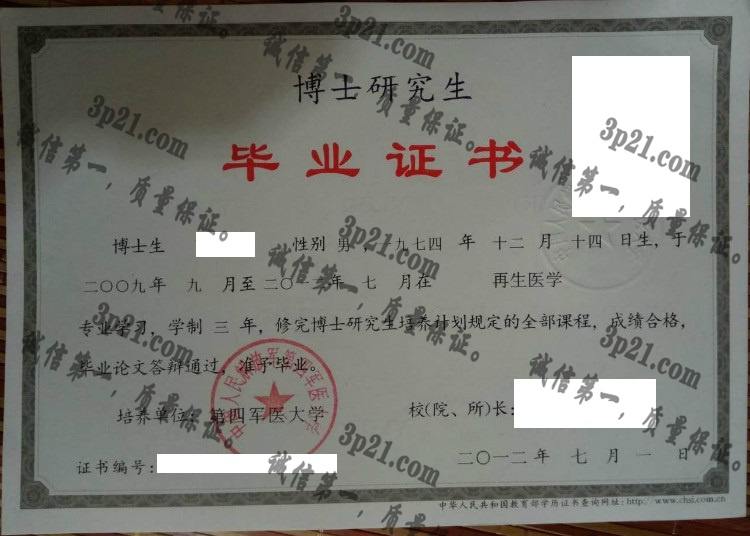 博士研究生
毕业证书
博士生 性别 男，一九七四 年 十二 月 十四 日生，于
二〇〇九年 九 月至二〇 年 七 月在 再生医学
专业学习，学制 三 年，修完博士研究生培养计划规定的全部课程，成绩合格，
毕业论文答辩通过，准予毕业。
中国人民解放军第四军医大学
培养单位：第四军医大学 校(院、所)长：
证书编号： 二〇一二年 七 月 一 日
中华人民共和国教育部学历证书查询网址：http://www.chsi.com.cn
质量保证。
3p21.com
诚信第一，质量保证。
3p21.com
诚信第一，质量保证。
3p21.com
诚信第一，质量保证。
3p21.com
诚信第一，质量保证。
3p21.com
诚信第一，质量保证。
3p21.com
诚信第一，质量保证。
3p21.com
诚信第一，质量